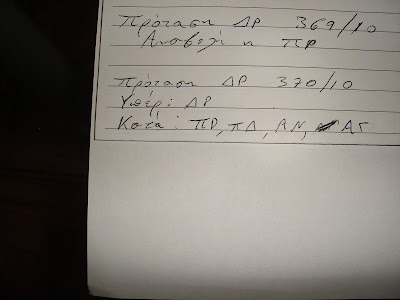 Πρόταση ΔΡ 369/10
Αναβολή η ΠΡ
Πρόταση ΔΡ 370/10
Υπέρ: ΔΡ
Κατά: ΠΡ, ΠΔ, ΑΝ, ΑΓ